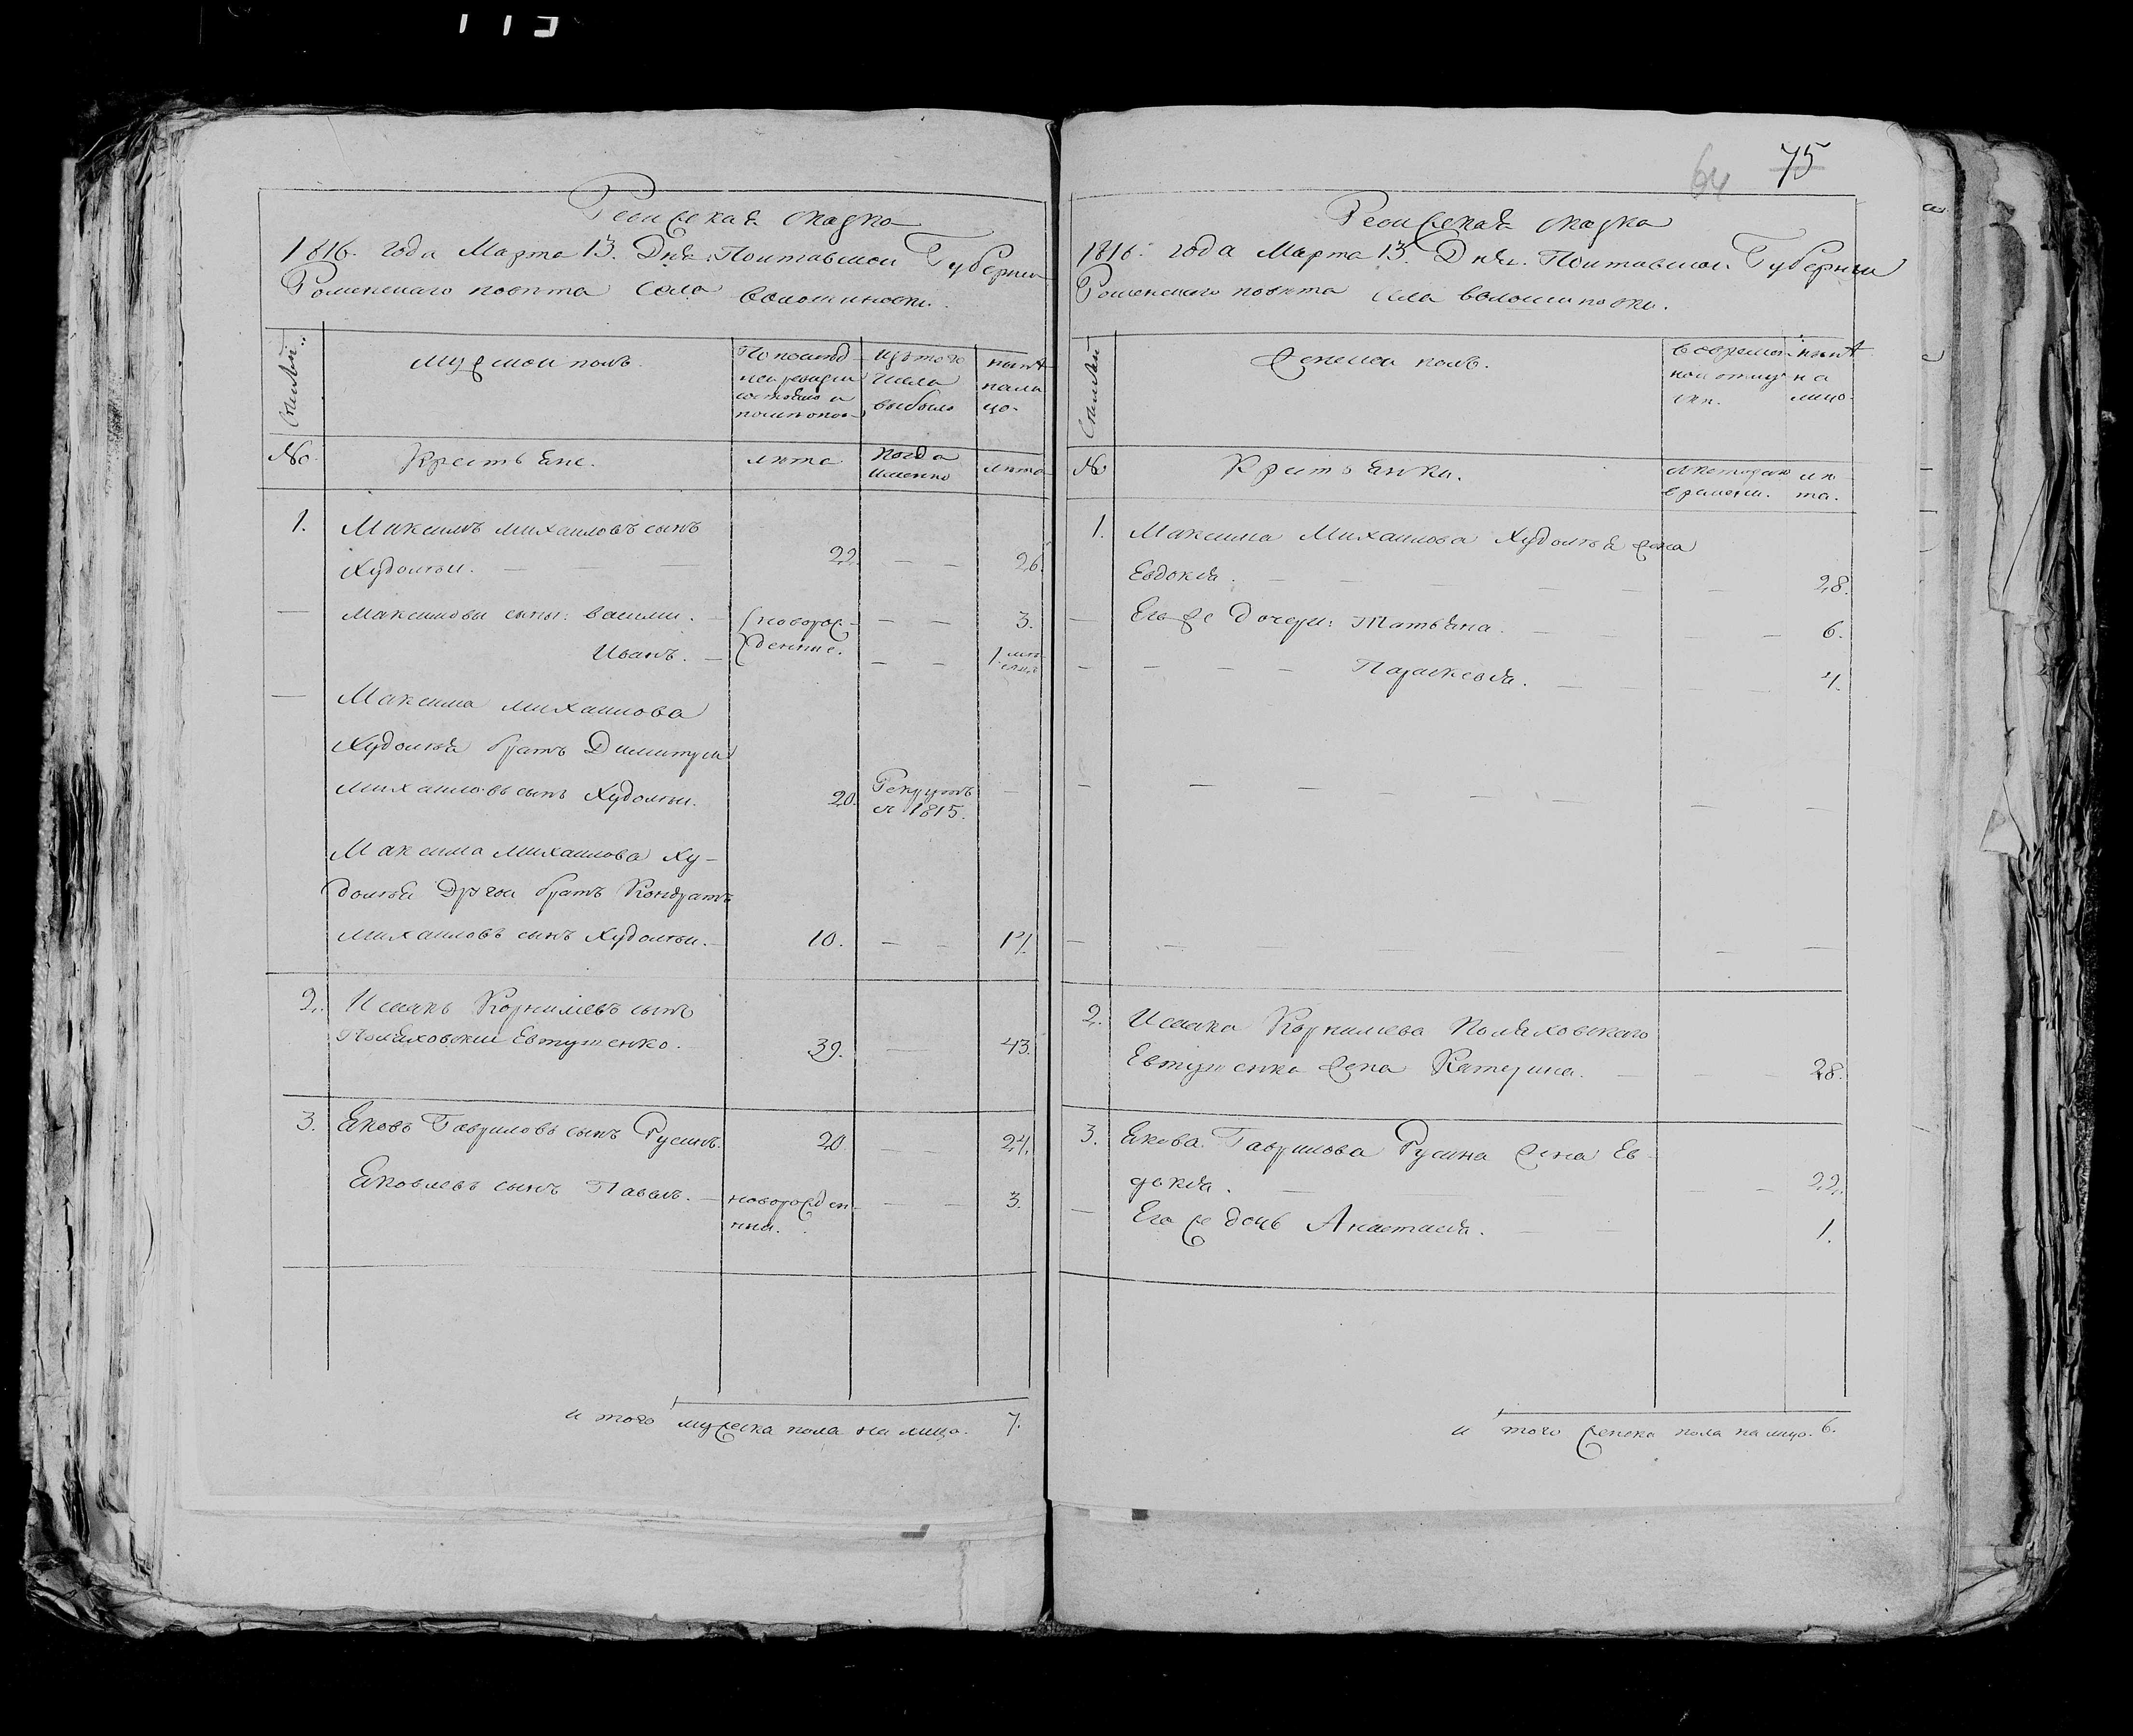 113
Ревижская сказка
1816. года Марта 13. Дня. Полтавской Губернии
Роменского повѣта Села Волошиновки.
Семьи
мужской полъ.
По послѣд-
ней ревизіи
состояло и
послѣ оной
Изъ того
числа
выбыло
нынѣ
на ли
цо.
№
Крестьяне.
лѣта
когда
именно
лѣта
1. Максимъ Михайловъ сынъ
Худолѣй. 22. 26.
Максимовы сыны: Василий. новорож- 3.
Иванъ. денные. 1. мѣ
сяцъ
Максима Михайлова
Худолѣя братъ Димитрий
Михайловъ сынъ Худолѣй. 20. Рекрутъ
в 1815.
Максима Михайлова Ху-
долѣя Другой братъ Кондратъ
Михайловъ сынъ Худолѣй. 10. 14.
2. Исаакъ Корнилиевъ сынъ
Поляховский Евтушенко. 39. 43.
3. Яковъ Гавриловъ сынъ Русинъ. 20 24.
Яковлевъ сынъ Павелъ. новорожден- 3.
ный.
и того мужеска пола на лицо. 7.
64 75
Ревижская сказка
1816. года Марта 13. Дня. Полтавской Губернии
Роменского повѣта Села Волошиновки.
Семьи
Женской полъ.
во времен-
ной отлуч-
ки.
нынѣ
на
лицо.
№
Крестьянки.
с котораго
времени.
лѣ
та.
1. Максима Михайлова Худолѣя жена
Евдокия. 28.
Его же дочери: Татьяна. 6.
Параскевия. 4.
2. Исаака Корнилиева Поляховского
Евтушенка жена Катерина. 28.
3. Якова Гаврилова Русина жена Ев-
докия. 22.
Его же дочь Анастасия. 1.
и того женска пола на лицо. 6.